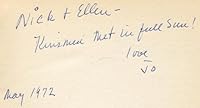 Nick + Ellen -
Kinsmen met in full sun!
love
Jo
May 1972